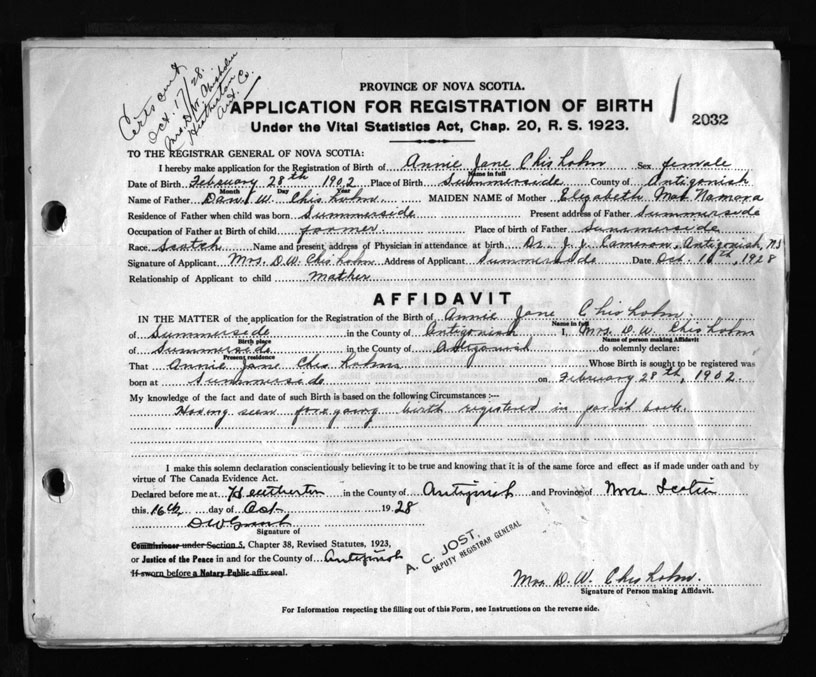 Cert sent
Oct. 17/28.
Mrs D. W. Chisholm
Heatherton
Ant. Co.
PROVINCE OF NOVA SCOTIA.
APPLICATION FOR REGISTRATION OF BIRTH
2032
Under the Vital Statistics Act, Chap. 20, R. S. 1923.
TO THE REGISTRAR GENERAL OF NOVA SCOTIA:
I hereby make application for the Registration of Birth of Annie Jane Chisholm Sex female
Name in full
Date of Birth February 28th 1902 Place of Birth Summerside County of Antigonish
Month Day Year
Name of Father Dan. W. Chisholm. MAIDEN NAME of Mother Elizabeth MacNamara
Residence of Father when child was born Summerside Present address of Father Summerside
Occupation of Father at Birth of child farmer Place of birth of Father Summerside
Race Scotch Name and present address of Physician in attendance at birth Dr. J. J. Cameron, Antigonish, NS
Signature of Applicant Mrs. D. W. Chisholm Address of Applicant Summerside Date Oct. 16th, 1928
Relationship of Applicant to child Mother
AFFIDAVIT
IN THE MATTER of the application for the Registration of the Birth of Annie Jane Chisholm
Name in full
of Summerside in the County of Antigonish I, Mrs. D. W. Chisholm
Birth place Name of person making Affidavit
of Summerside in the County of Antigonish do solemnly declare:
Present residence
That Annie Jane Chisholm Whose Birth is sought to be registered was
born at Summerside on February 28th, 1902.
My knowledge of the fact and date of such Birth is based on the following Circumstances :—
Having seen foregoing birth registered in parish book.
I make this solemn declaration conscientiously believing it to be true and knowing that it is of the same force and effect as if made under oath and by
virtue of The Canada Evidence Act.
Declared before me at Heatherton in the County of Antigonish and Province of Nova Scotia
this 16th day of Oct. 1928
Signature of
Commissioner under Section 5, Chapter 38, Revised Statutes, 1923,
or Justice of the Peace in and for the County of Antigonish
If sworn before a Notary Public affix seal.
A. C. JOST,
DEPUTY REGISTRAR GENERAL
Mrs. D. W. Chisholm.
Signature of Person making Affidavit.
For Information respecting the filling out of this Form, see Instructions on the reverse side.